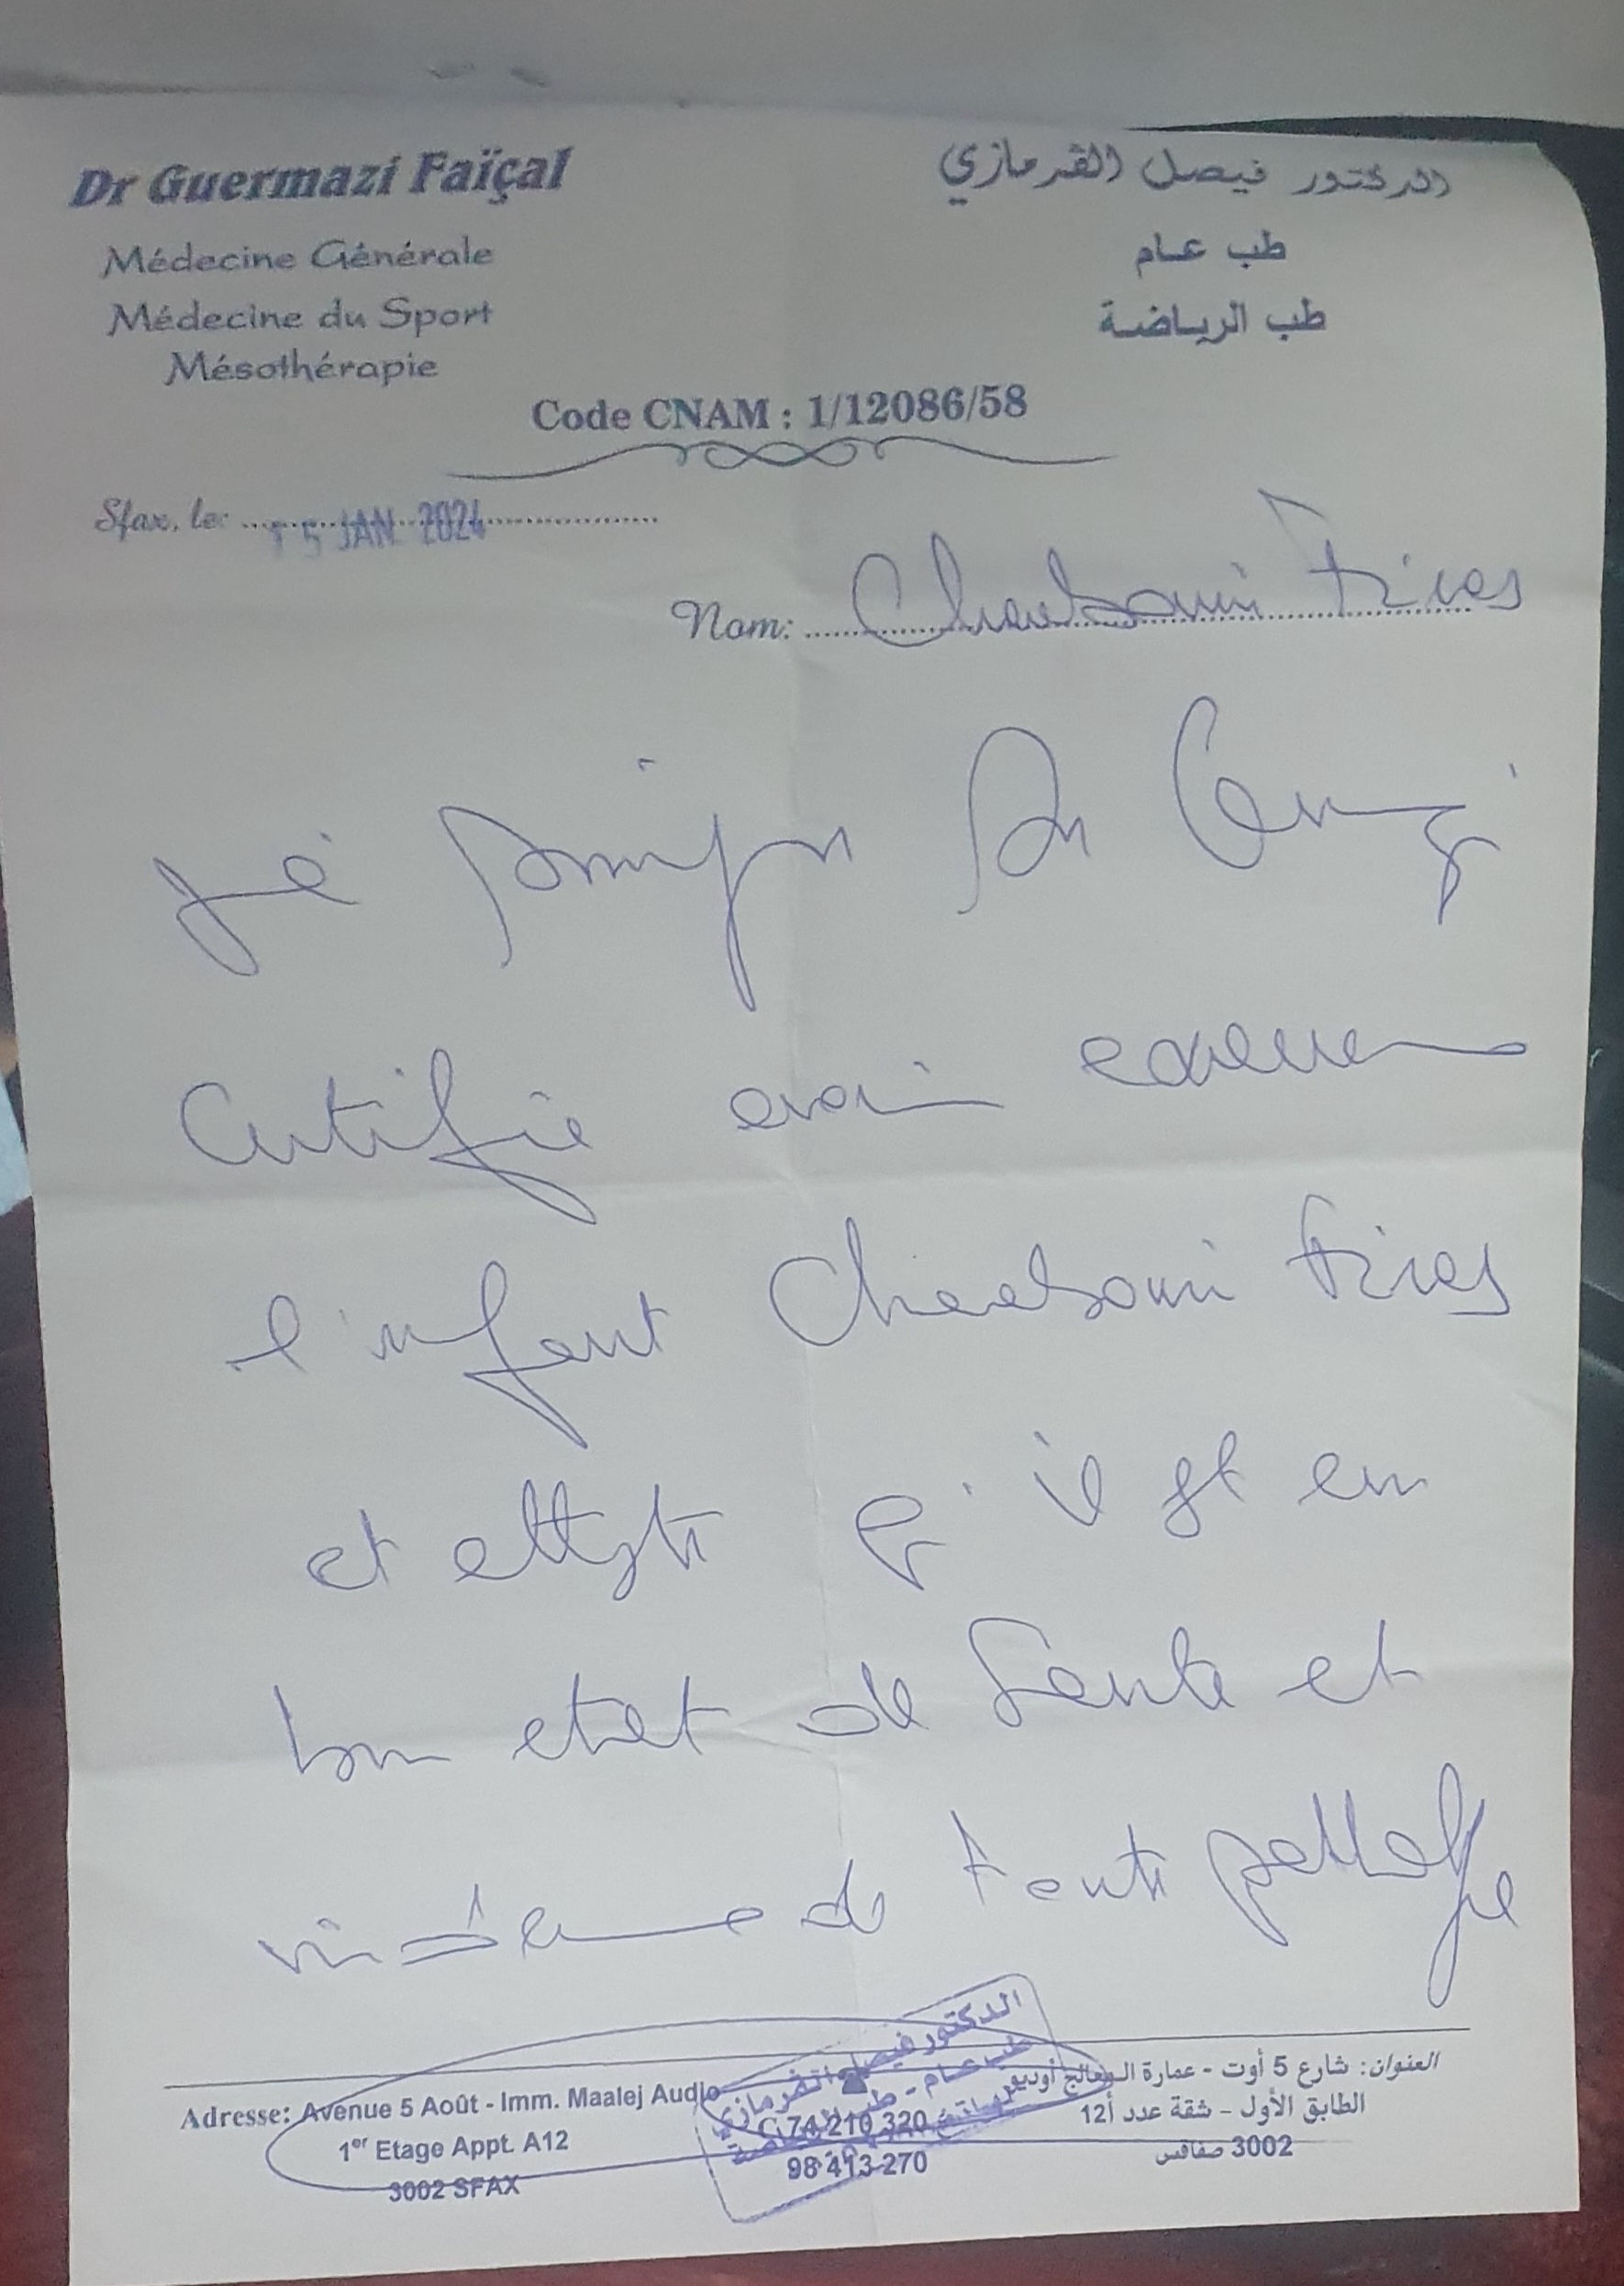 Dr Guermazi Faïçal
Médecine Générale
Médecine du Sport
Mésothérapie
الدكتور فيصل القرمازي
طب عام
طب الرياضة
Code CNAM : 1/12086/58
Sfax, le: 15 JAN 2024
Nom: Chaabouni Firas
Je soussigné Dr
certifie avoir examiné
l'enfant Chaabouni Firas
et atteste qu'il est en
bon etat de santé et
indemne de toute pathologie
الدكتور فيصل القرمازي
Adresse: Avenue 5 Août - Imm. Maalej Audio
1er Etage Appt. A12
3002 SFAX
74 210 320
98 413 270
العنوان: شارع 5 أوت - عمارة المعالج أوديو
الطابق الأول - شقة عدد أ12
3002 صفاقس